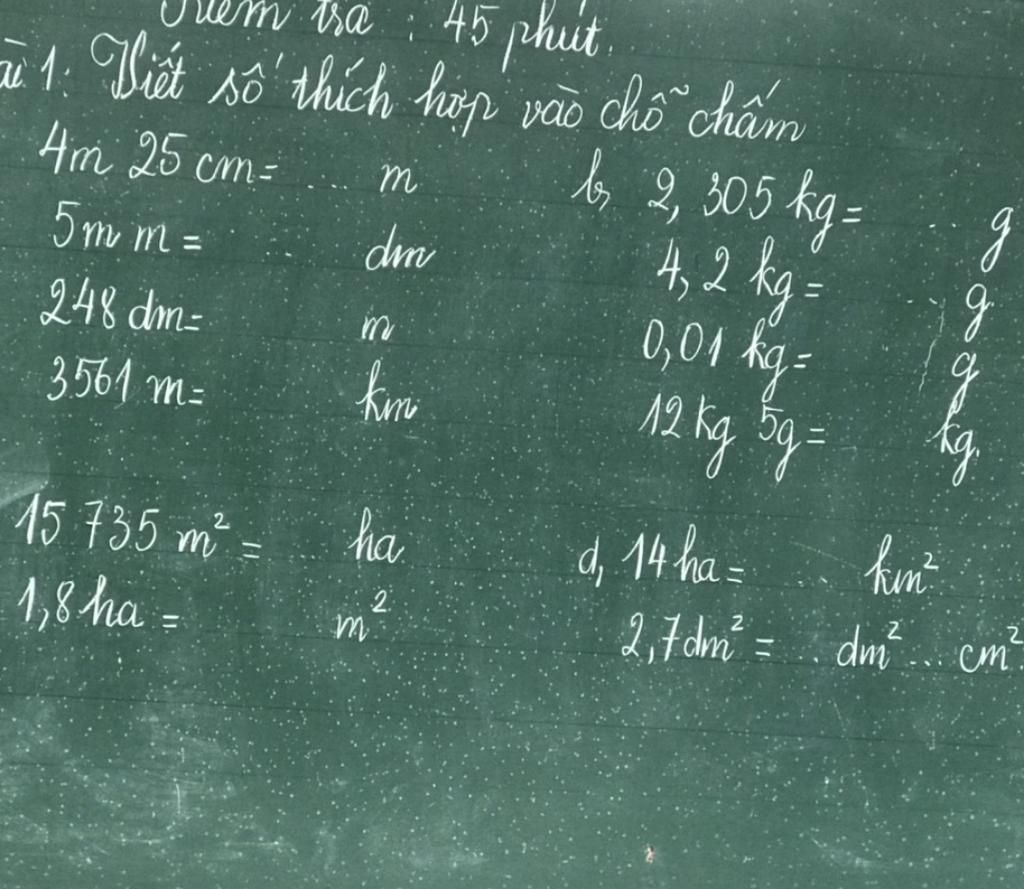 Kiểm tra : 45 phút.
ài 1: Viết số thích hợp vào chỗ chấm
4m 25 cm = ... m
5m m = ... dm
248 dm = m
3561 m = km
b, 2,305 kg = ... g
4,2 kg = ... g
0,01 kg = g
12 kg 5g = kg.
15 735 m² = ha
1,8 ha = m²
d, 14 ha = ... km²
2,7 dm² = .. dm² ... cm²